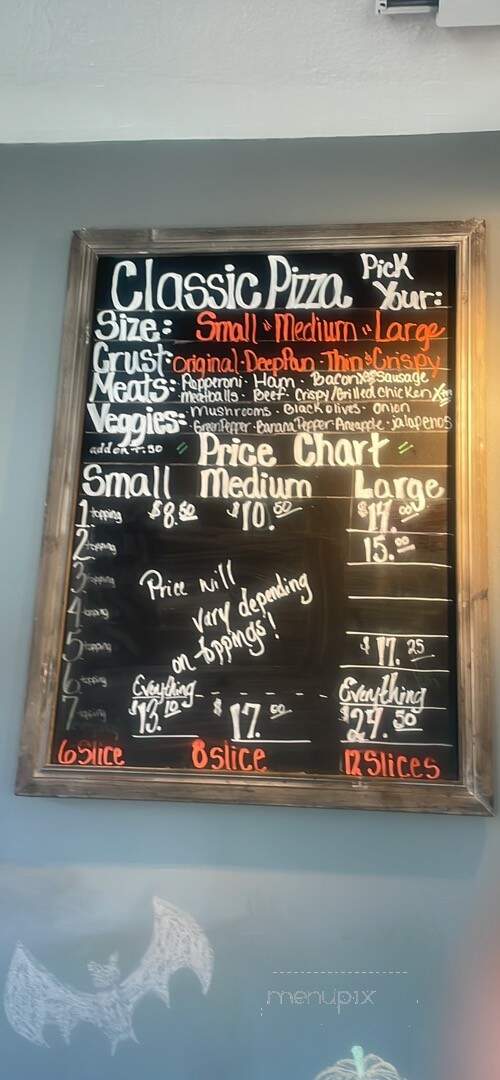 Classic Pizza Pick Your:
Size: Small Medium Large
Crust: original · Deep Pan · Thin & Crispy
Meats: Pepperoni · Ham · Bacon Sausage
meatballs · Beef · Crispy/Grilled chicken
Veggies: mushrooms · Black olives · onion
Green Pepper · Banana Pepper · Pineapple · jalapenos
add on + .50
Price Chart
Small Medium Large
1 topping $8.50 $10.50 $14.00
2 topping 15.00
3 topping
4 topping
5 topping $17.25
6 topping
7 topping
Price will
vary depending
on toppings!
Everything Everything
$13.10 $17.50 $24.50
6 Slice 8 slice 12 Slices
menupix